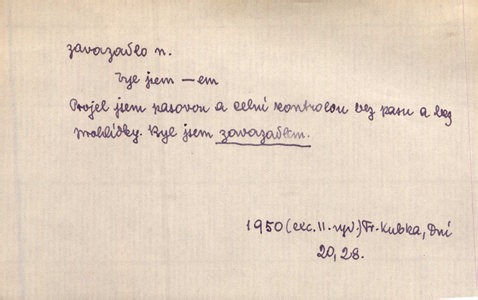 zavazadlo n.
Byl jsem – em
Projel jsem pasovou a celní kontrolou bez pasu a bez
prohlídky. Byl jsem zavazadlem.
1950 (exc. II. vyd.) Fr. Kubka, Dni
20, 28.